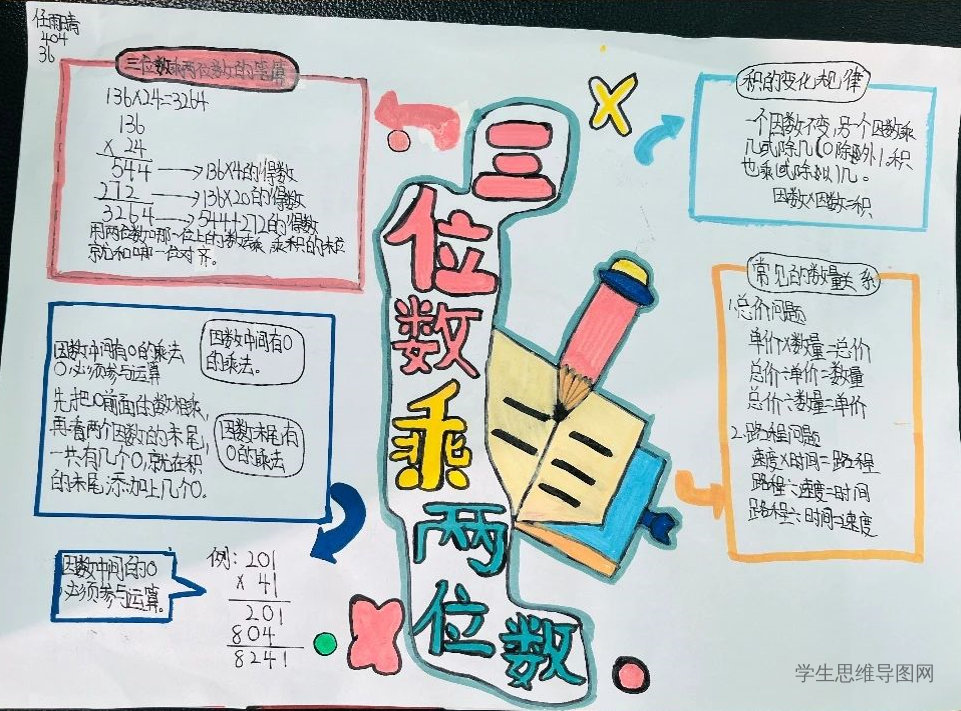 任雨晴
404
36
三位数乘两位数的笔算
136×24=3264
136
× 24
544→136×4的得数
272→136×20的得数
3264→544+272的得数
用两位数哪一位上的数去乘,乘积的末位
就和哪一位对齐。
因数中间有0的乘法
0必须参与运算
因数中间有0
的乘法。
先把0前面的数相乘,
再看两个因数的末尾,
一共有几个0,就在积
的末尾添加上几个0。
因数末尾有
0的乘法
因数中间的0
必须参与运算。
例:201
× 41
201
804
8241
三位数乘两位数
积的变化规律
一个因数不变,另一个因数乘
几或除几(0除外),积
也乘或除以几。
因数×因数=积
常见的数量关系
1.总价问题
单价×数量=总价
总价÷单价=数量
总价÷数量=单价
2.路程问题
速度×时间=路程
路程÷速度=时间
路程÷时间=速度
学生思维导图网